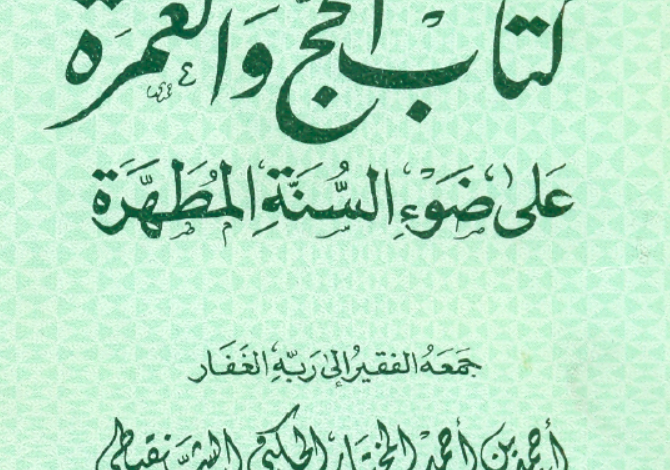 كتاب الحج والعمرة
على ضَوْءِ السُّنَّةِ المُطَهَّرَة
جَمَعَهُ الفقيرُ إلى رَبِّهِ الغَفَار
أحمد بن أحمد المختار الجكني الشنقيطي